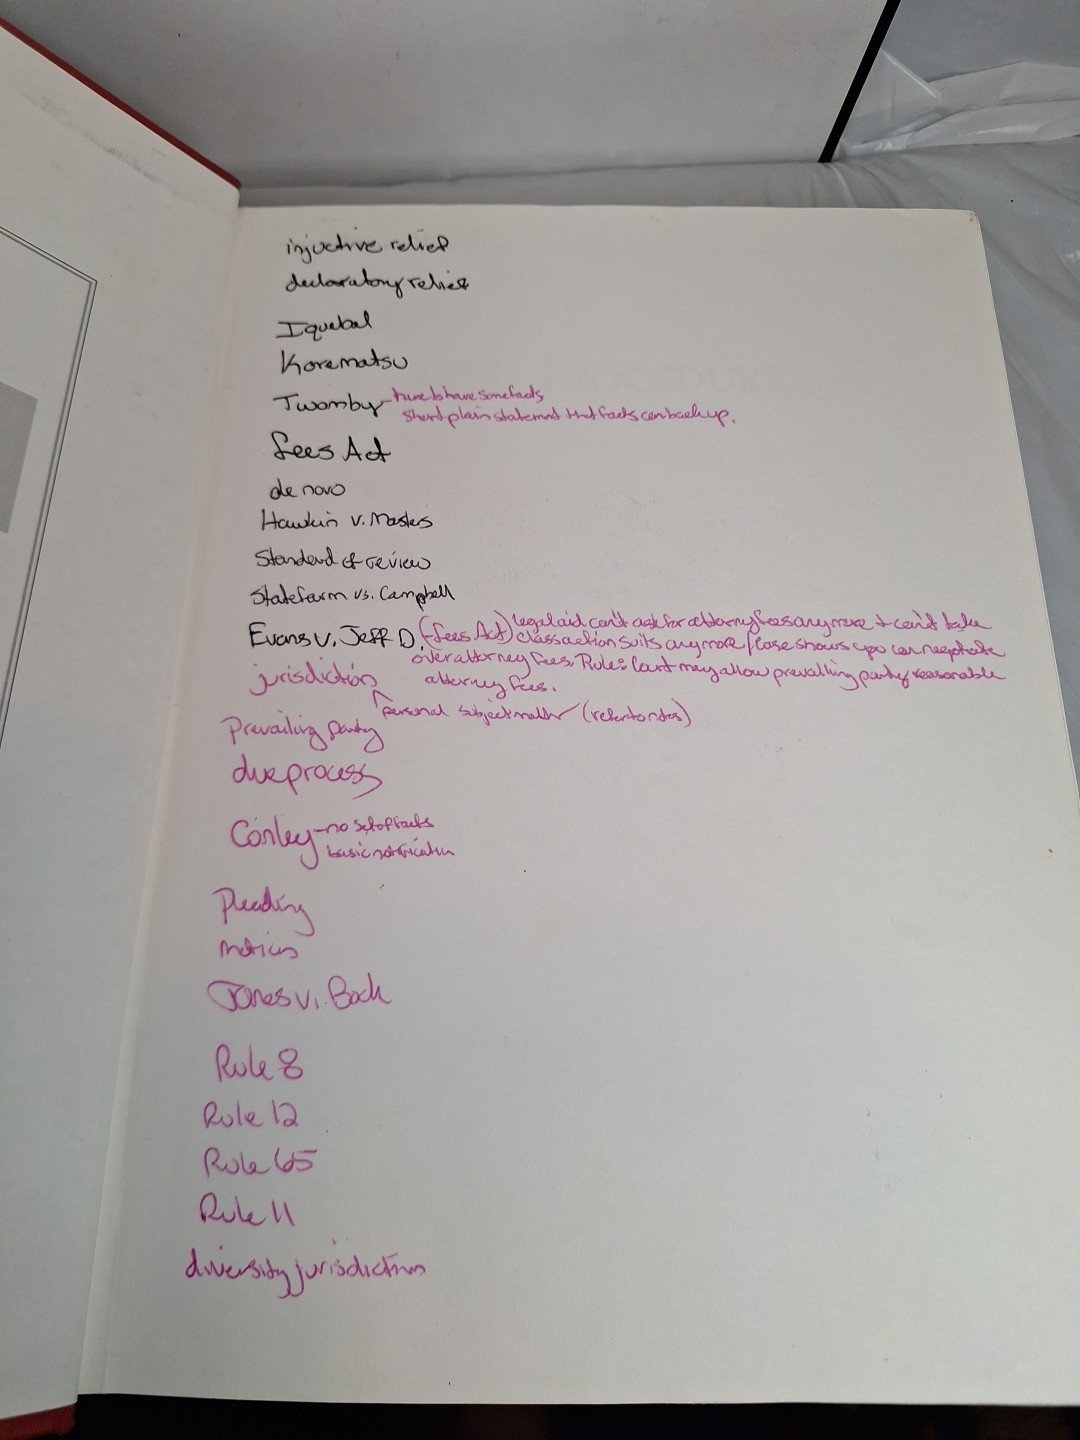 injuctive relief
declaratory relief
Iquebal
Korematsu
Twomby - have to have some facts
short plain statement that facts can back up.
fees Act
de novo
Hawkin v. Masters
Standard of review
State farm vs. Campbell
Evans v. Jeff D. (-fees Act) legal aid can't ask for attorny fees anymore + can't take
class action suits anymore/Case shows you can negotiate
over attorney fees. Rule: Court may allow prevailing party reasonable
attorney fees.
jurisdiction
personal subject matter (refer to notes)
Prevailing party
due process
Conley - no set of facts
basic notification
Pleading
motions
Jones v. Bock
Rule 8
Rule 12
Rule 65
Rule 11
diversity jurisdiction